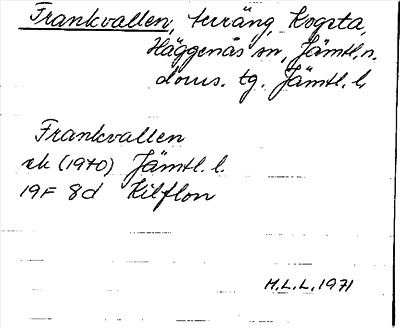 Frankvallen, terräng, Kogsta,
Häggenås sn, Jämtl. n.
doms. tg. Jämtl. l.
Frankvallen
ek (1970) Jämtl. l.
19F 8d Kilflon
M.L.L. 1971